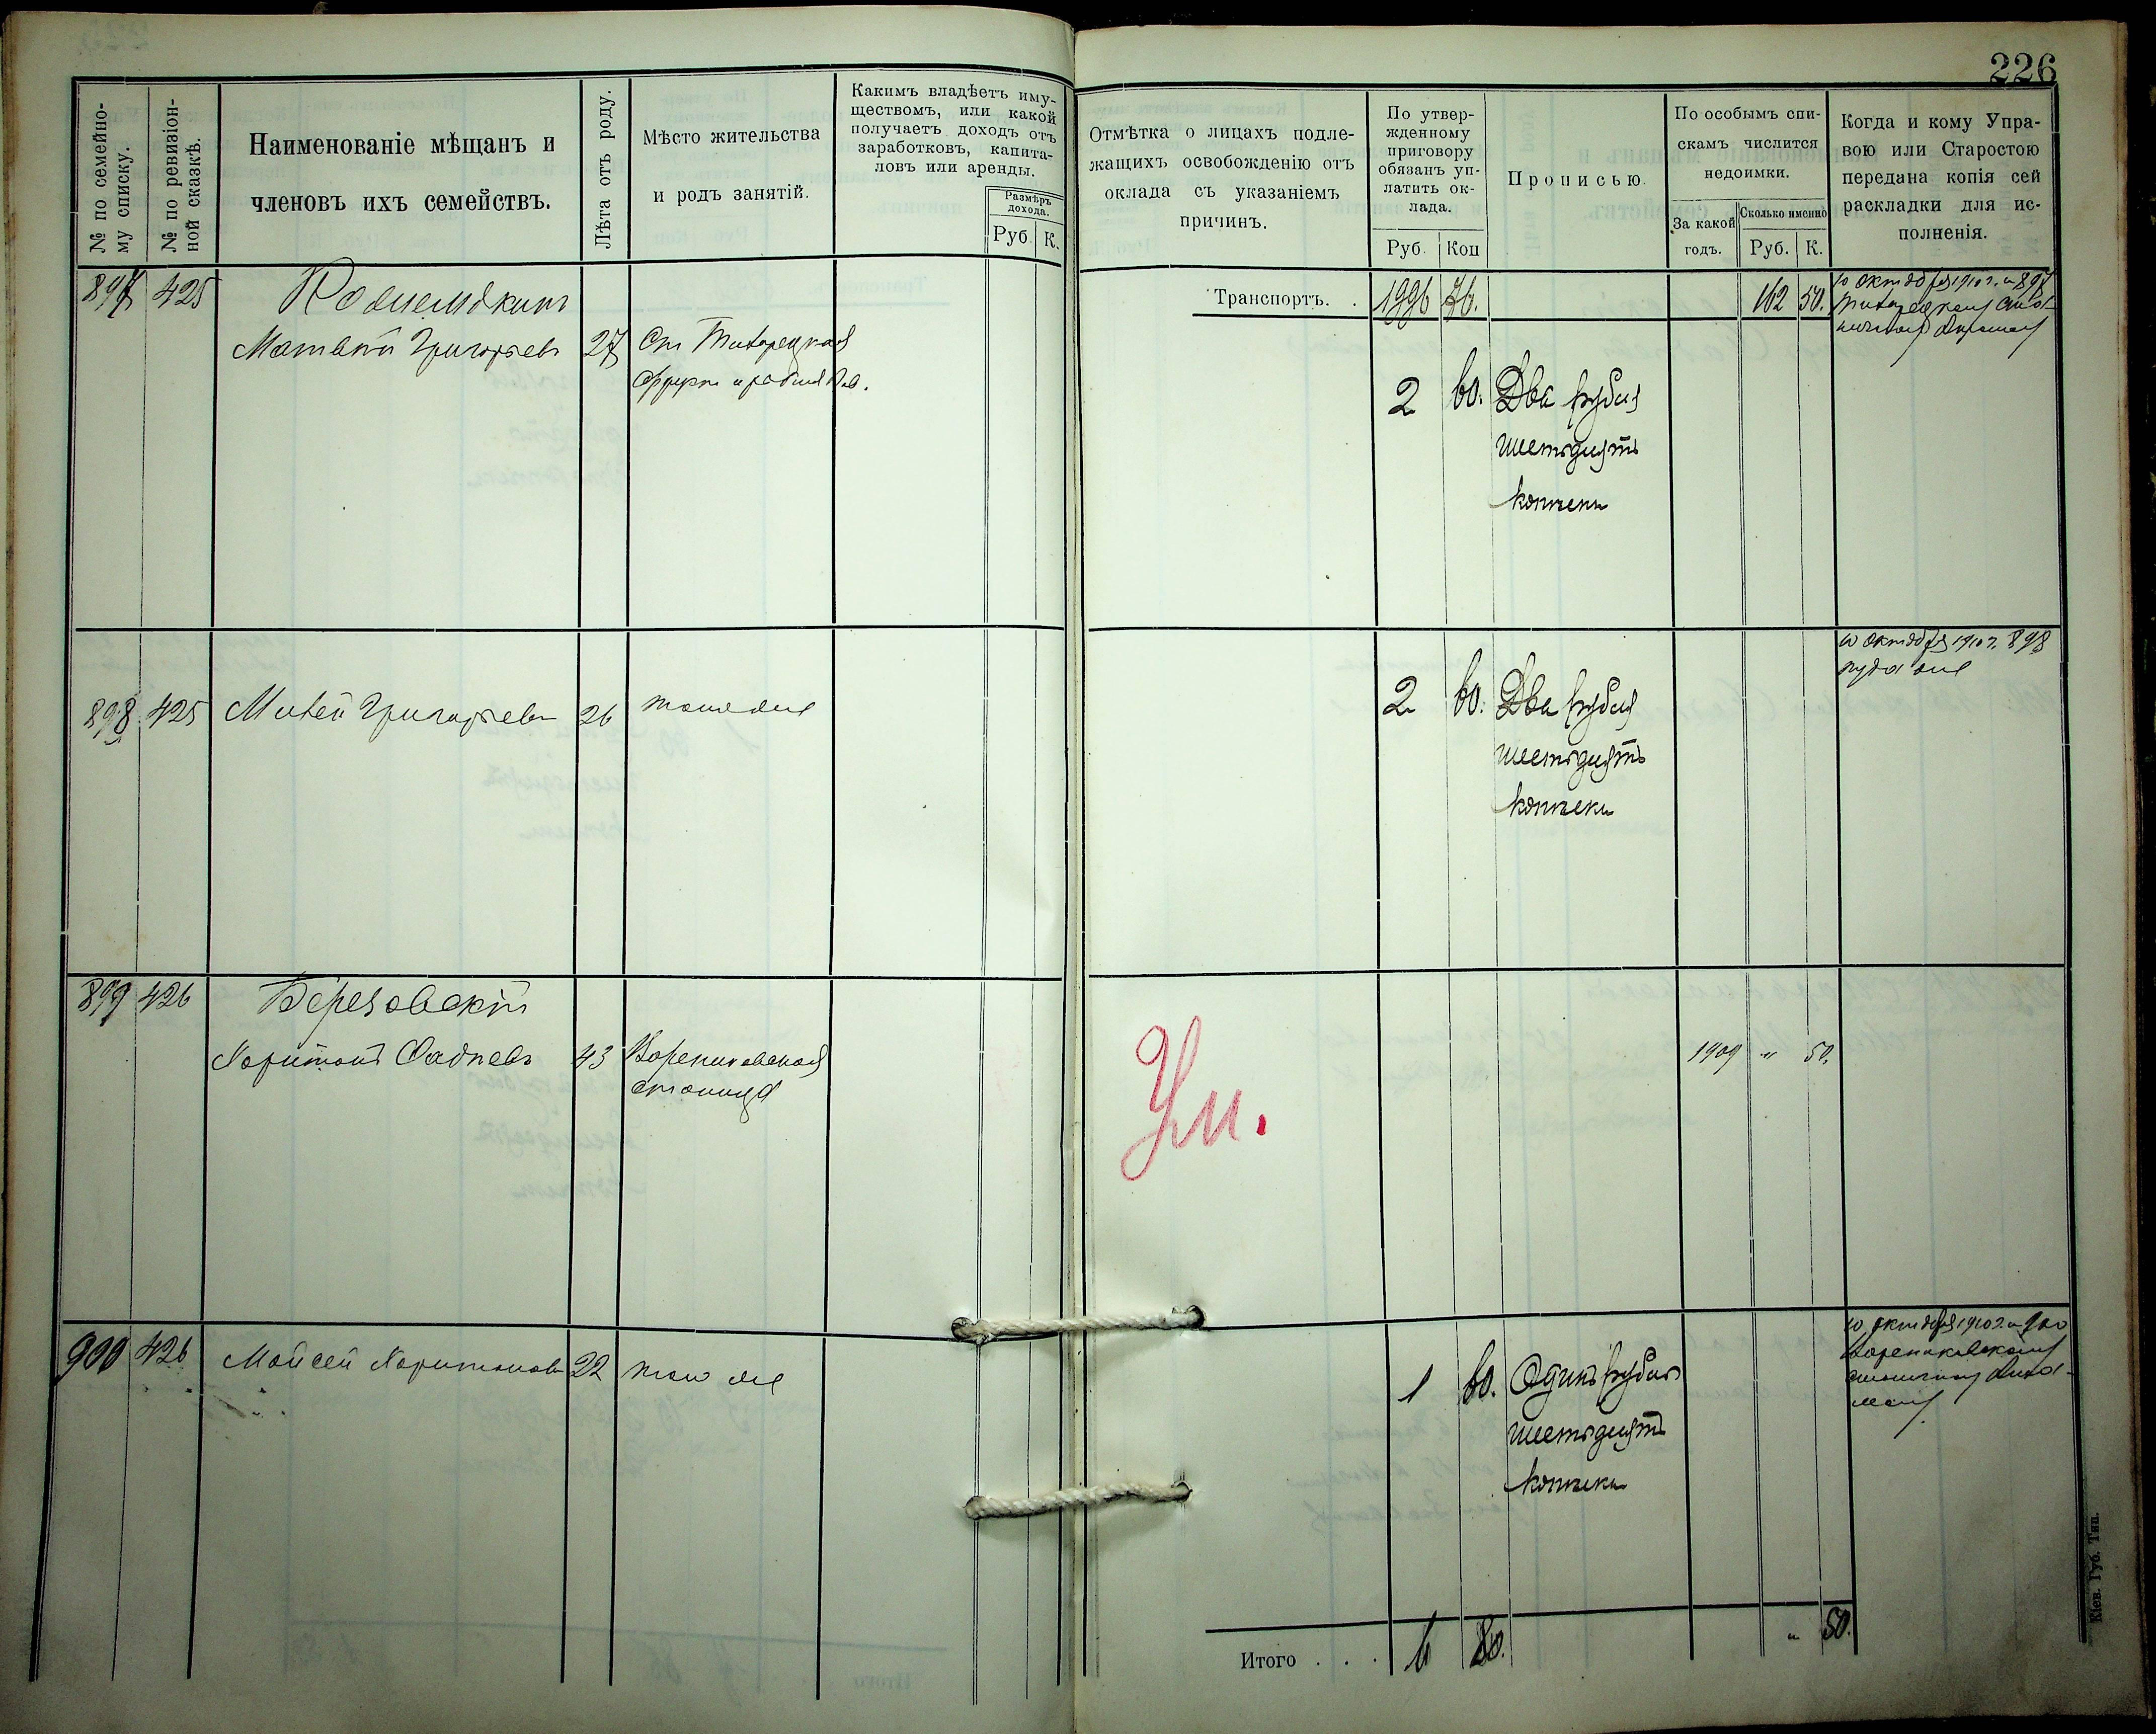 226
№ по семейно-
му списку.
№ по ревизіон-
ной сказкѣ.
Наименованіе мѣщанъ и
членовъ ихъ семействъ.
Лѣта отъ роду.
Мѣсто жительства
и родъ занятій.
Какимъ владѣетъ иму-
ществомъ, или какой
получаетъ доходъ отъ
заработковъ, капита-
ловъ или аренды.
Размѣръ
дохода.
Руб. К.
Отмѣтка о лицахъ подле-
жащихъ освобожденію отъ
оклада съ указаніемъ
причинъ.
По утвер-
жденному
приговору
обязанъ уп-
латить ок-
лада.
Руб. Коп
Прописью.
По особымъ спи-
скамъ числится
недоимки.
За какой
годъ.
Сколько именно
Руб. К.
Когда и кому Упра-
вою или Старостою
передана копія сей
раскладки для ис-
полненія.
897 425
Матвѣй Григорьевъ 27 Ст Тихорецкая
Транспортъ. . 1996 76. 162 50.
10 октября 1910 г. № 897
Тихорецкому
2 60. Два рубля
шестьдесятъ
копѣекъ
898 425 Михей Григорьевъ 26 тоже
2 60. Два рубля
шестьдесятъ
копѣекъ
10 октября 1910 г. 898
туда же
899 426 Березовскій
Харитонъ Фадѣевъ 43 Варениковская
станица
Ум.
1909 " 50.
900 426 Мойсей Харитоновъ 22 тоже
1 60. Одинъ рубль
шестьдесятъ
копѣекъ
10 октября 1910 г. № 900
Варениковскому
станичному Ата-
ману
Итого . . . 6 80. " 50.
Кіев. Губ. Тип.